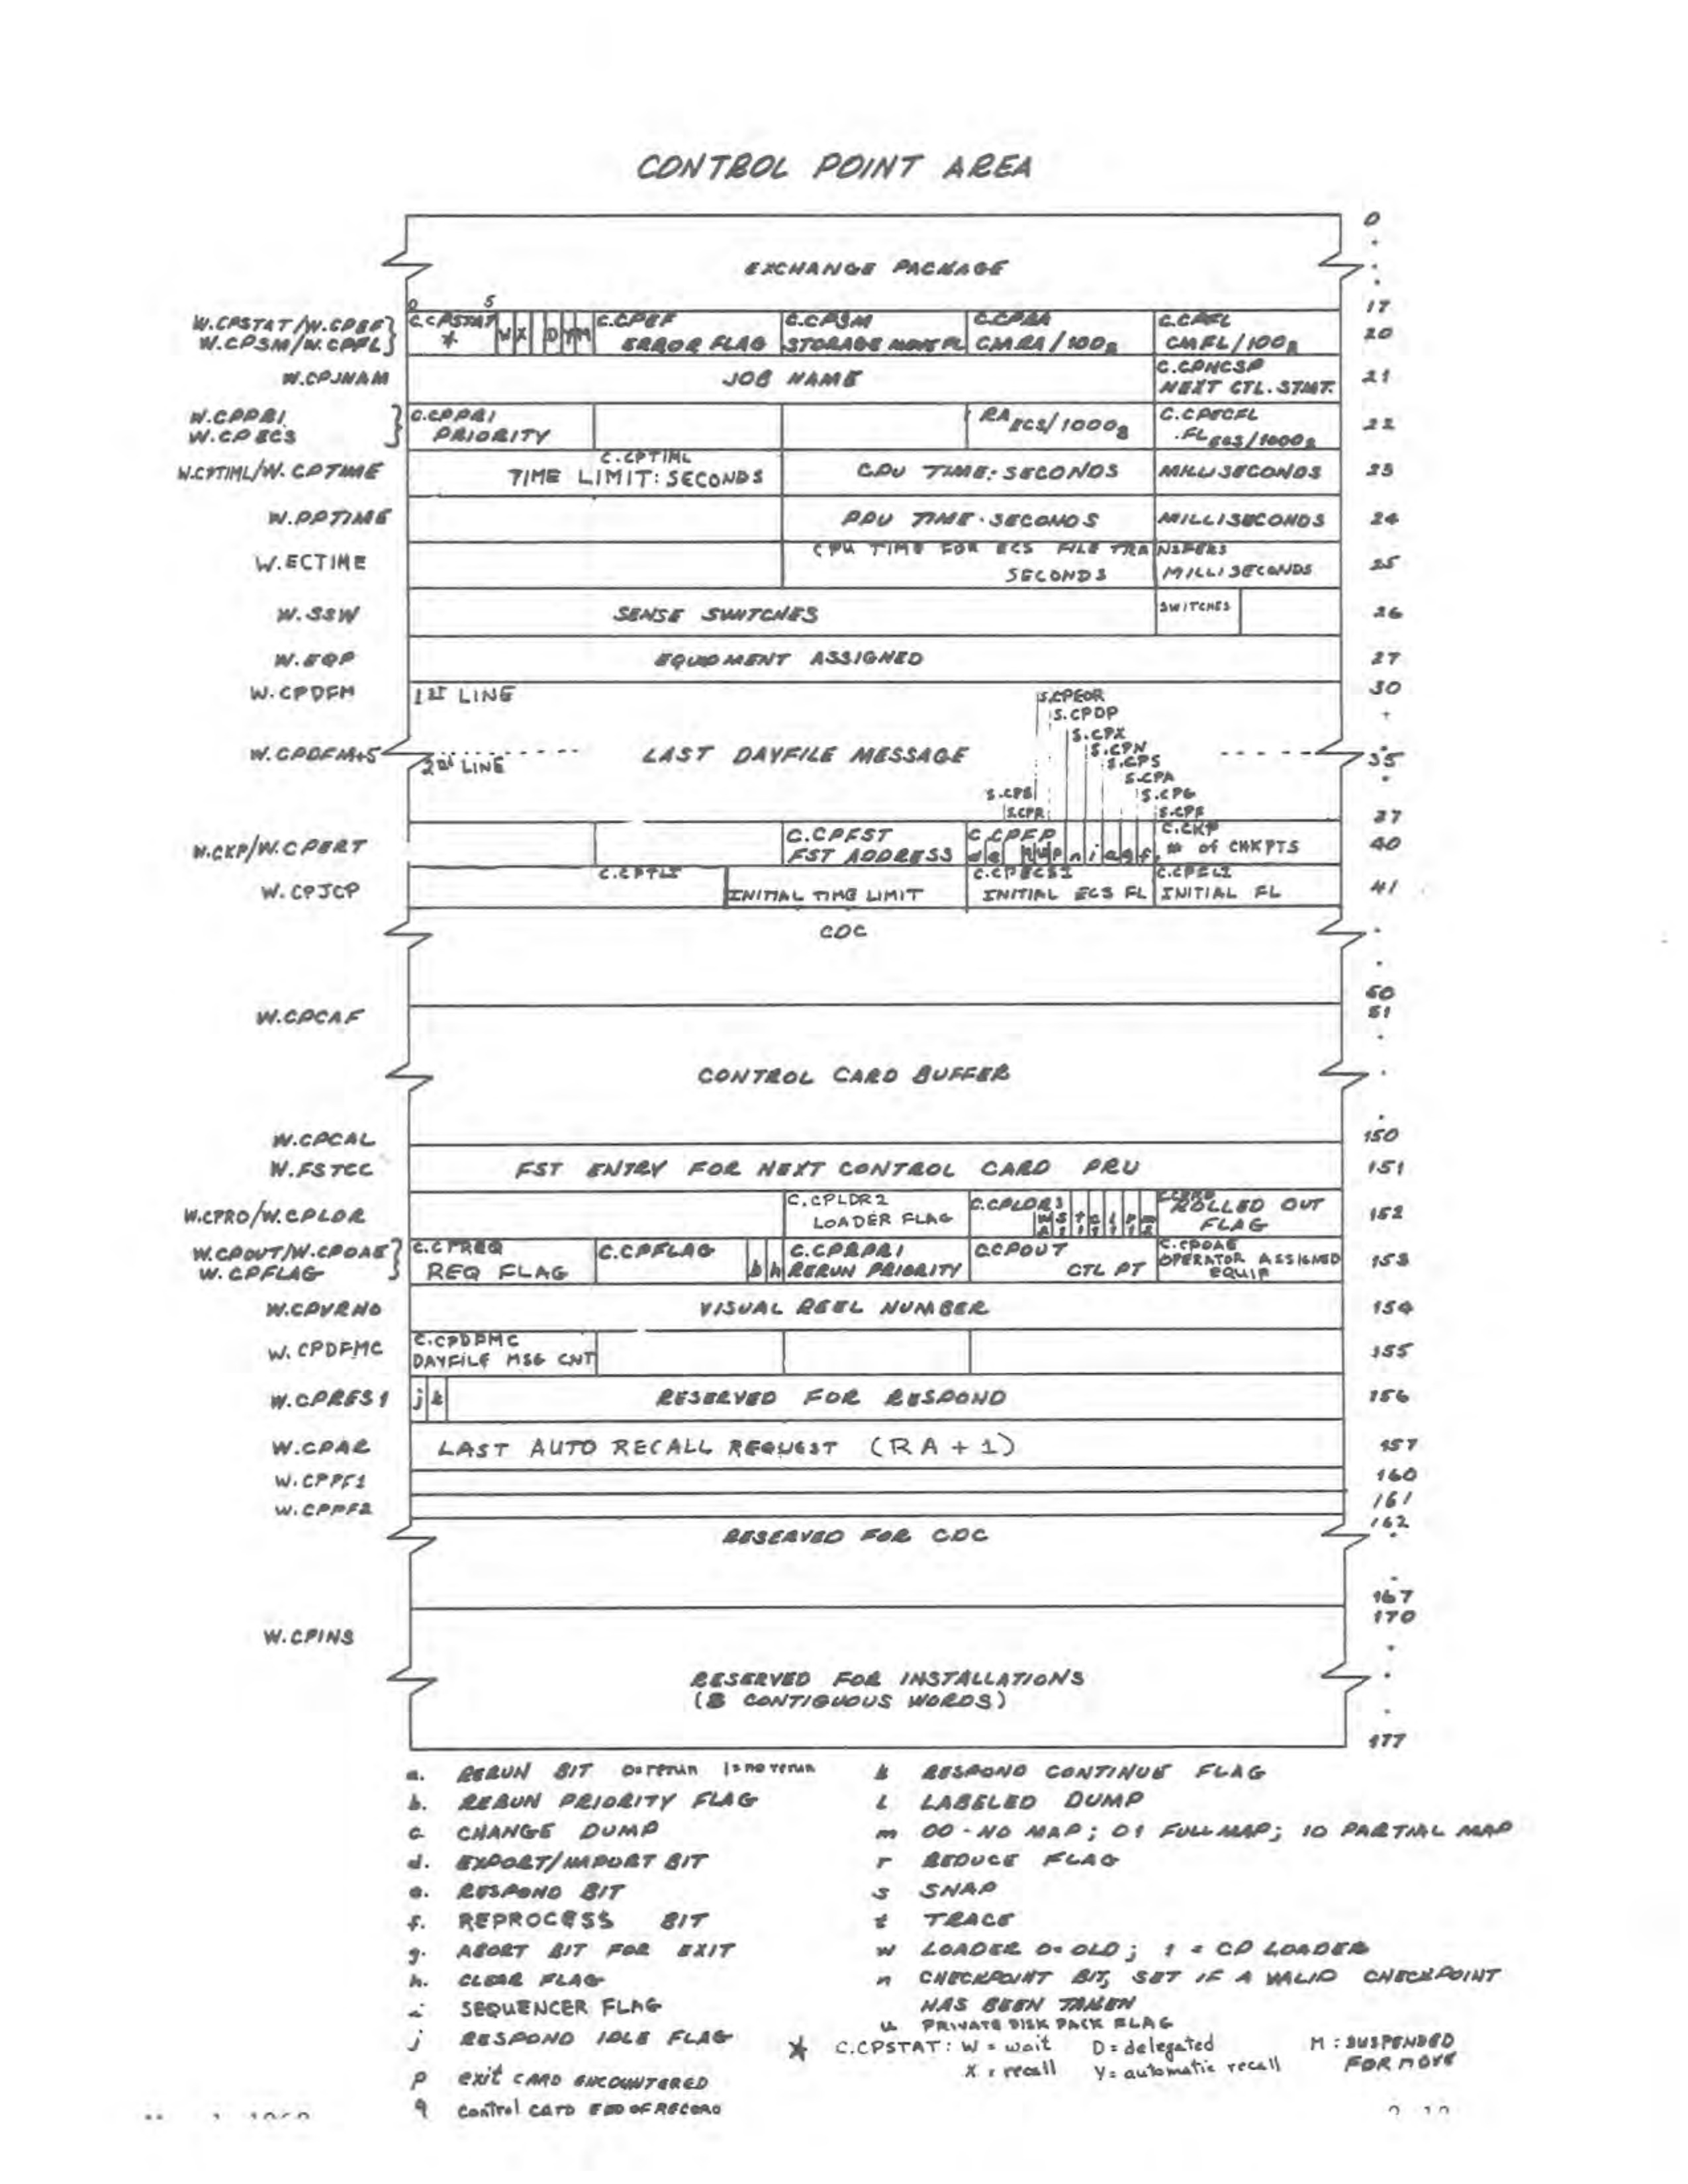 CONTROL POINT AREA
0
EXCHANGE PACKAGE
17
0 5
W.CPSTAT/W.CPEF
W.CPSM/W.CPFL
C.CPSTAT * W X D Y M
C.CPEF ERROR FLAG
C.CPSM STORAGE MOVE FL
C.CPRA CMRA/100₈
C.CPFL CMFL/100₈
20
W.CPJNAM JOB NAME C.CPNCSP NEXT CTL. STMT. 21
W.CPPRI
W.CPECS
C.CPPRI PRIORITY
RA ECS/1000₈
C.CPECFL
FL ECS/1000₈
22
W.CPTIML/W.CPTIME C.CPTIML
TIME LIMIT: SECONDS CPU TIME: SECONDS MILLISECONDS 23
W.PPTIME PPU TIME-SECONDS MILLISECONDS 24
W.ECTIME CPU TIME FOR ECS FILE TRANSFERS
SECONDS MILLISECONDS 25
W.SSW SENSE SWITCHES SWITCHES 26
W.EQP EQUIPMENT ASSIGNED 27
W.CPDFM 1ST LINE 30
S.CPEOR
S.CPDP
S.CPX
S.CPN
W.CPDFM+5 LAST DAYFILE MESSAGE 35
2nd LINE
S.CPS
S.CPA
S.CPB S.CPG
S.CPR S.CPF
37
W.CKP/W.CPERT
C.CPFST FST ADDRESS
C.CPEP
d e q u p n i a g f
C.CKP # of CHKPTS
40
W.CPJCP C.CPTLI INITIAL TIME LIMIT
C.CPECSI INITIAL ECS FL
C.CPFLI INITIAL FL
41
CDC
50
W.CPCAF 51
CONTROL CARD BUFFER
W.CPCAL 150
W.FSTCC FST ENTRY FOR NEXT CONTROL CARD PRU 151
W.CPRO/W.CPLDR
C.CPLDR2 LOADER FLAG
C.CPLDR3
w s t c l r m
ROLLED OUT FLAG
152
W.CPOUT/W.CPOAE
W.CPFLAG
C.CPREQ REQ FLAG
C.CPFLAG b h
C.CPRPRI RERUN PRIORITY
C.CPOUT CTL PT
C.CPOAE OPERATOR ASSIGNED EQUIP
153
W.CPVRNO VISUAL REEL NUMBER 154
W.CPDFMC C.CPDFMC
DAYFILE MSG CNT 155
W.CPRES1 j k RESERVED FOR RESPOND 156
W.CPAR LAST AUTO RECALL REQUEST (RA+1) 157
W.CPPF1 160
W.CPPF2 161
162
RESERVED FOR CDC
167
170
W.CPINS
RESERVED FOR INSTALLATIONS
(8 CONTIGUOUS WORDS)
177
a. RERUN BIT 0=rerun 1=no rerun
b. RERUN PRIORITY FLAG
c CHANGE DUMP
d. EXPORT/IMPORT BIT
e. RESPOND BIT
f. REPROCESS BIT
g. ABORT BIT FOR EXIT
h. CLEAR FLAG
i SEQUENCER FLAG
j RESPOND IDLE FLAG
p exit CARD ENCOUNTERED
q Control CARD END OF RECORD
k RESPOND CONTINUE FLAG
l LABELED DUMP
m 00-NO MAP; 01 FULL MAP; 10 PARTIAL MAP
r REDUCE FLAG
s SNAP
t TRACE
w LOADER 0=OLD; 1 = CP LOADER
n CHECKPOINT BIT, SET IF A VALID CHECKPOINT
HAS BEEN TAKEN
u PRIVATE DISK PACK FLAG
* C.CPSTAT: W = wait D = delegated M: SUSPENDED
X = recall Y = automatic recall FOR MOVE